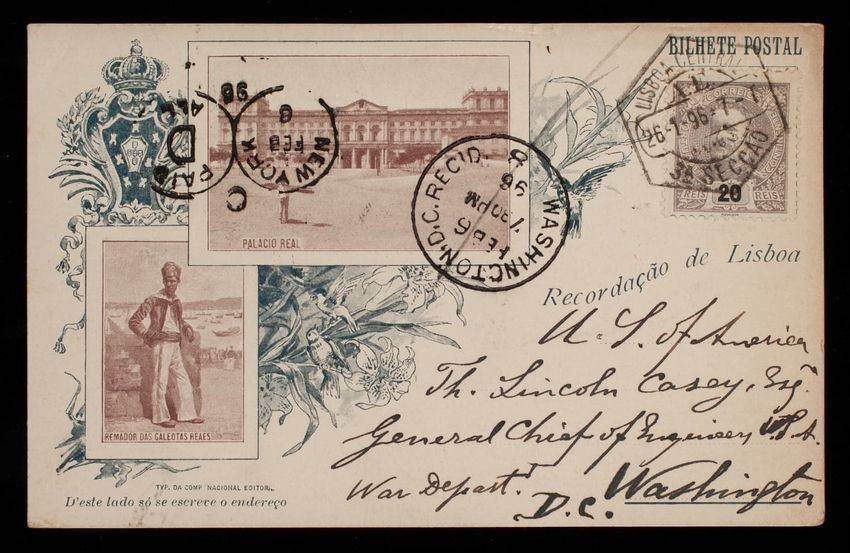 BILHETE POSTAL
LISBOA CENTRAL
26-1-96-7-
3A SECÇÃO
CORREIOS
20
REIS REIS
PAID
96
C
NEW YORK
FEB
6
WASHINGTON. D.C. REC'D.
FEB 6
7 30 PM
96
PALACIO REAL
Recordação de Lisboa
U. S. of America
Th. Lincoln Casey, Esq.
General Chief of Engineers, U.S.A.
War Depart.t
D.C. Washington
REMADOR DAS GALEOTAS REAES
TYP. DA COMP. NACIONAL EDITORA
D'este lado só se escreve o endereço